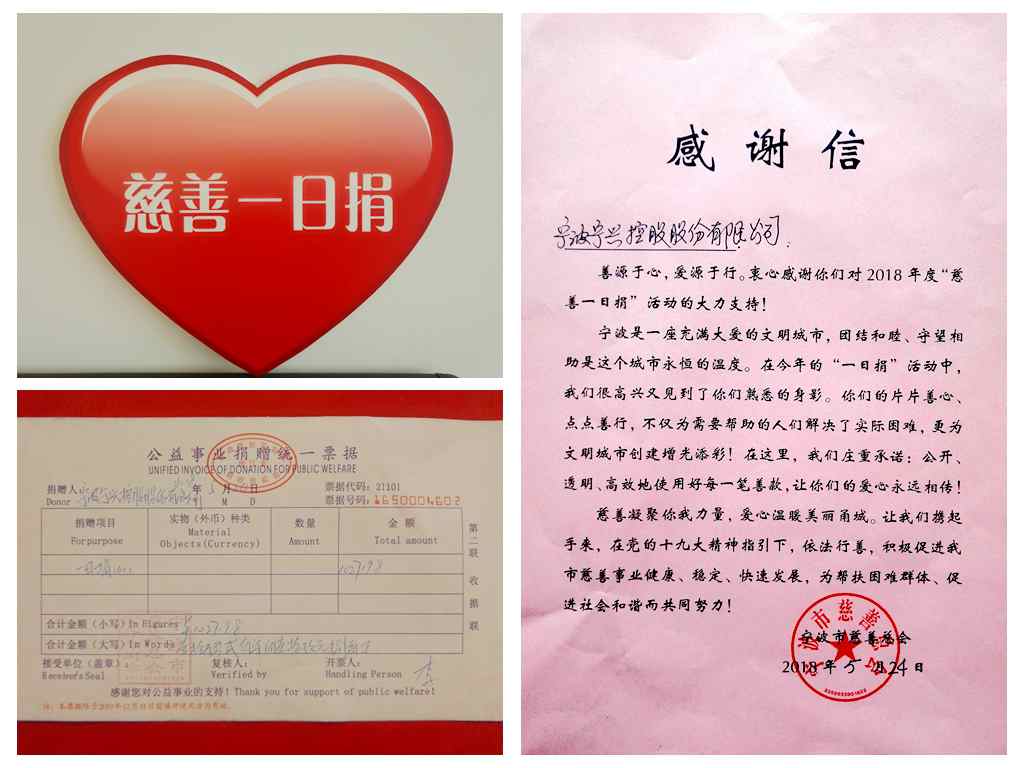 慈善一日捐
公益事业捐赠统一票据
UNIFIED INVOICE OF DONATION FOR PUBLIC WELFARE
捐赠人 宁波宁兴控股股份有限公司 年 5 月 日 票据代码: 27101
Donor Y M D 票据号码:
捐赠项目 实物（外币）种类 数量 金 额
For purpose Material Objects(Currency) Amount Total amount
一日捐
第二联 收据联
合计金额（小写）In Figures
合计金额（大写）In Words
接受单位（盖章）： 复核人： 开票人：
Receiver's Seal Verified by Handling Person
感谢您对公益事业的支持！Thank you for support of public welfare!
感谢信
宁波宁兴控股股份有限公司：
善源于心，爱源于行。衷心感谢你们对 2018 年度“慈
善一日捐”活动的大力支持！
宁波是一座充满大爱的文明城市，团结和睦、守望相
助是这个城市永恒的温度。在今年的“一日捐”活动中，
我们很高兴又见到了你们熟悉的身影。你们的片片善心、
点点善行，不仅为需要帮助的人们解决了实际困难，更为
文明城市创建增光添彩！在这里，我们庄重承诺：公开、
透明、高效地使用好每一笔善款，让你们的爱心永远相传！
慈善凝聚你我力量，爱心温暖美丽甬城。让我们携起
手来，在党的十九大精神指引下，依法行善，积极促进我
市慈善事业健康、稳定、快速发展，为帮扶困难群体、促
进社会和谐而共同努力！
宁波市慈善总会
2018 年 5 月 24 日